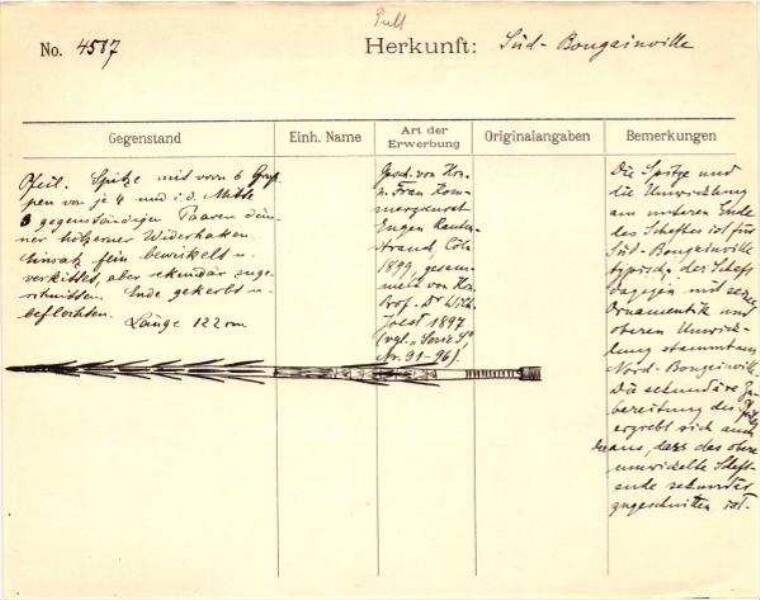 No. 4587
Herkunft: Süd-Bougainville
Gegenstand
Einh. Name
Art der Erwerbung
Originalangaben
Bemerkungen
Pfeil. Spitze mit vorn 6 Grup-
pen von je 4 und i. d. Mitte
3 gegenständigen Paaren dün-
ner hölzerner Widerhaken.
Einsatz fein bewickelt u.
verkittet, aber sekundär zuge-
schnitten. Ende gekerbt u.
beflochten.
Länge 122 cm
Gesch. von Hrn.
u. Frau Kom-
merzienrat
Eugen Rauten-
strauch, Cöln
1899, gesam-
melt von Hrn.
Prof. Dr. Wilh.
Joest 1897
(vgl. „Serie S",
Nr. 91-96).
Die Spitze und
die Umwicklung
am unteren Ende
des Schaftes ist für
Süd-Bougainville
typisch, der Schaft
dagegen mit seiner
Ornamentik und
oberen Umwick-
lung stammt aus
Nord-Bougainville.
Die sekundäre Zu-
bereitung des Pfeils
ergibt sich auch
daraus, dass das obere
umwickelte Schaft-
ende sekundär
zugeschnitten ist.